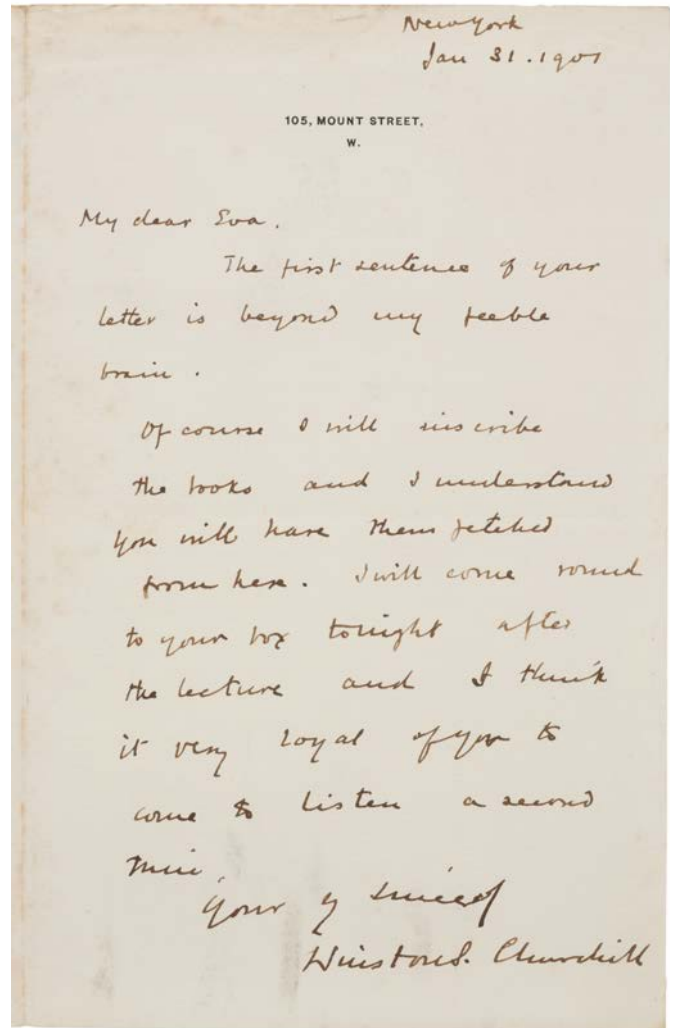 New York
Jan 31. 1901
105, MOUNT STREET,
W.
My dear Eva.
The first sentence of your
letter is beyond my feeble
brain.
Of course I will inscribe
the books and I understand
you will have them fetched
from here. I will come round
to your box tonight after
the lecture and I think
it very loyal of you to
come to listen a second
time,
Your
Winston S. Churchill